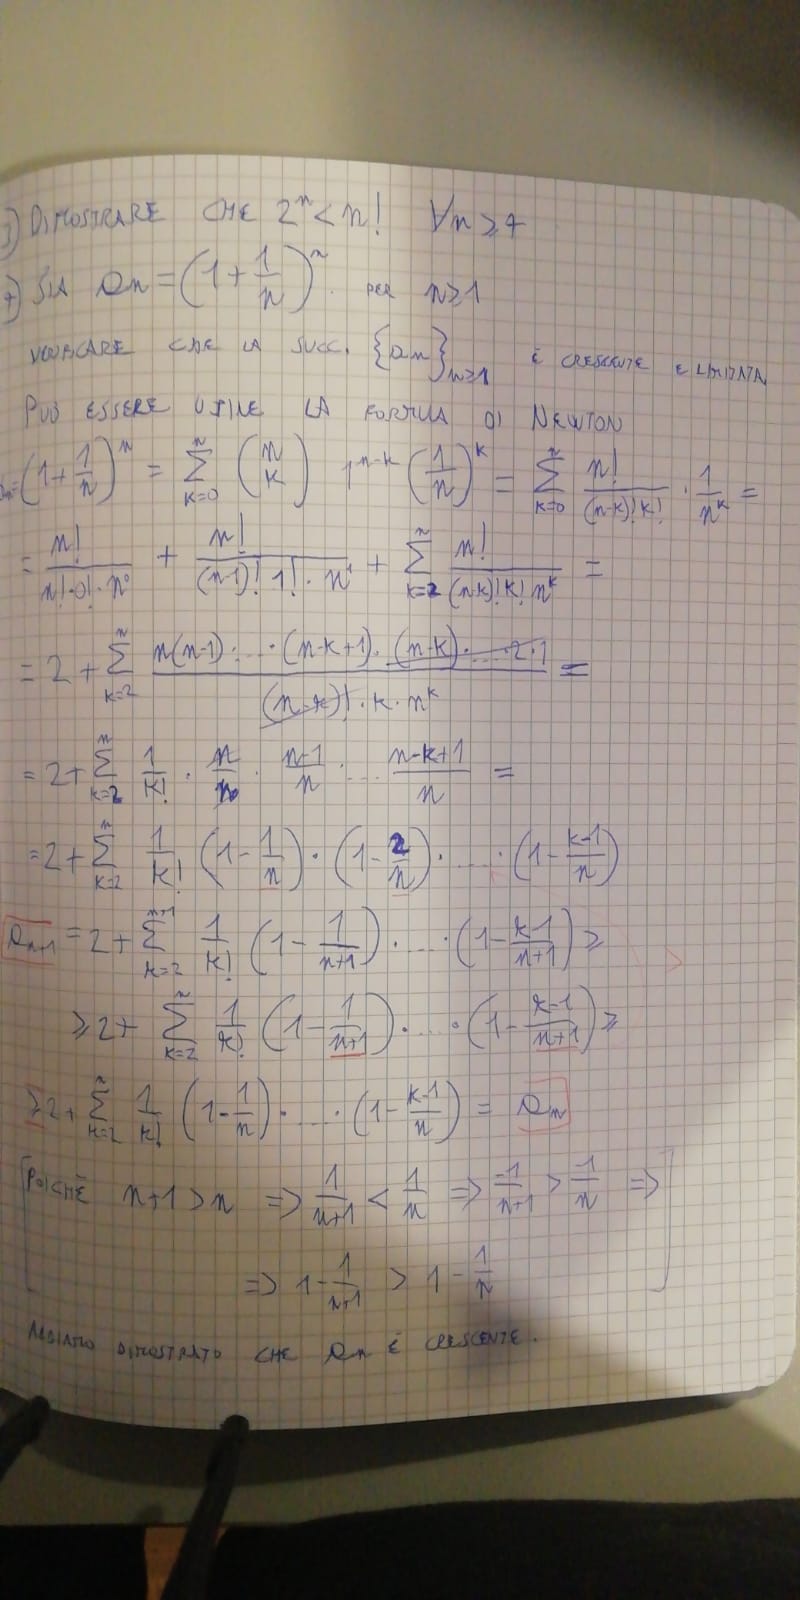 3) DIMOSTRARE CHE 2^n < n! ∀n ≥ 4
4) SIA an = (1 + 1/n)^n PER n ≥ 1
VERIFICARE CHE LA SUCC. {an}_{n≥1} È CRESCENTE E LIMITATA
PUÒ ESSERE UTILE LA FORMULA DI NEWTON
an = (1 + 1/n)^n = Σ_{k=0}^{n} (n k) 1^{n-k} (1/n)^k = Σ_{k=0}^{n} n!/((n-k)! k!) · 1/n^k =
= n!/(n! · 0! · n^0) + n!/((n-1)! 1! · n^1) + Σ_{k=2}^{n} n!/((n-k)! k! n^k) =
= 2 + Σ_{k=2}^{n} n(n-1) · ... · (n-k+1) · (n-k) · ... 2 · 1/((n-k)! · k · n^k) =
= 2 + Σ_{k=2}^{n} 1/k! · n/n · (n-1)/n · ... (n-k+1)/n =
= 2 + Σ_{k=2}^{n} 1/k! (1 - 1/n) · (1 - 2/n) · ... · (1 - (k-1)/n)
a_{n+1} = 2 + Σ_{k=2}^{n+1} 1/k! (1 - 1/(n+1)) · ... · (1 - (k-1)/(n+1)) ≥
≥ 2 + Σ_{k=2}^{n} 1/k! (1 - 1/(n+1)) · ... · (1 - (k-1)/(n+1)) ≥
≥ 2 + Σ_{k=2}^{n} 1/k! (1 - 1/n) · ... · (1 - (k-1)/n) = an
[POICHÈ n+1 > n ⇒ 1/(n+1) < 1/n ⇒ -1/(n+1) > -1/n ⇒
⇒ 1 - 1/(n+1) > 1 - 1/n]
ABBIAMO DIMOSTRATO CHE an È CRESCENTE.